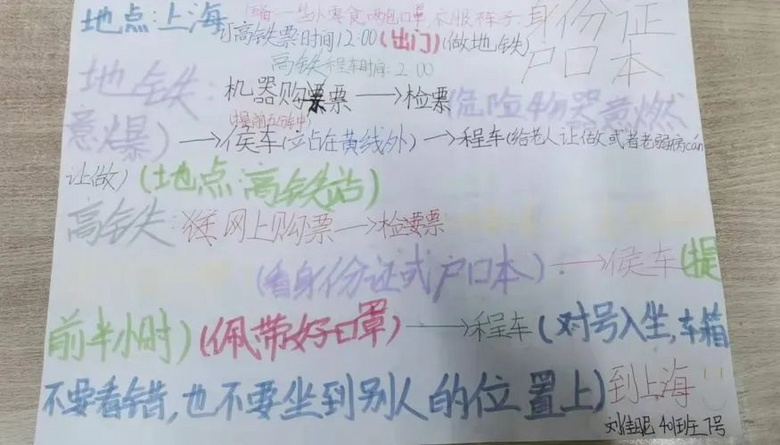 地点:上海
准备一些小零食,两包口罩,衣服裤子,身份证
订高铁票时间12:00(出门)(做地铁) 户口本
高铁程车时间:2:00
地铁:机器购票票→检票
危险物器意燃
意爆)→侯车(立占在黄线外)→程车(给老人让做或者老弱病cán
(提前五分钟)
让做)(地点高铁站)
高铁:网上购票→检票
(看身份证或户口本)→侯车(提
前半小时)(佩带好口罩)→程车(对号入坐,车箱
不要看错,也不要坐到别人的位置上)到上海
4班7号